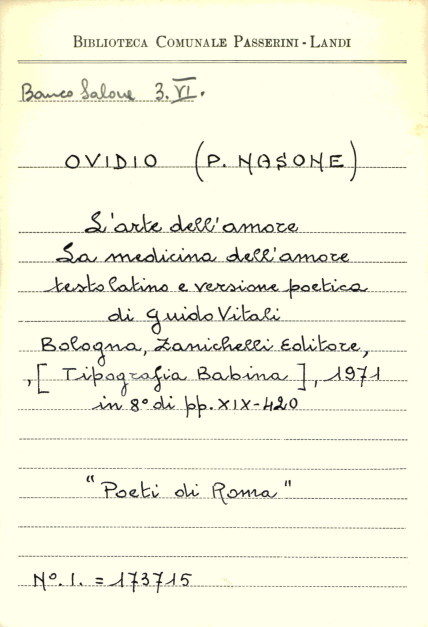 BIBLIOTECA COMUNALE PASSERINI - LANDI
Banco Salone 3.VI.
OVIDIO (P. NASONE)
L'arte dell'amore
La medicina dell'amore
testo latino e versione poetica
di Guido Vitali
Bologna, Zanichelli Editore,
, [ Tipografia Babina ], 1971
in 8° di pp. XIX-420
"Poeti di Roma"
N°. I. = 173715